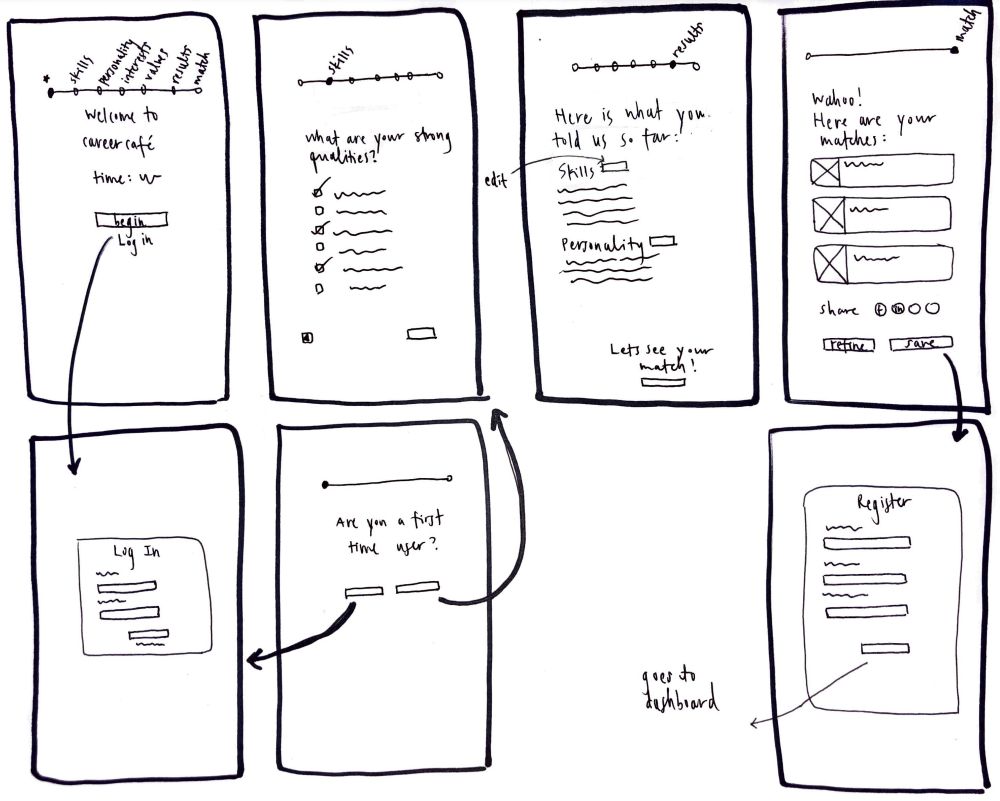 *
skills
personality
interests
values
results
match
Welcome to
career café
time:
begin
Log in
skills
What are your strong
qualities?
results
Here is what you
told us so far:
edit
Skills
Personality
Lets see your
match!
match
Wahoo!
Here are your
matches:
share f in
refine save
Log In
Are you a first
time user?
Register
goes to
dashboard